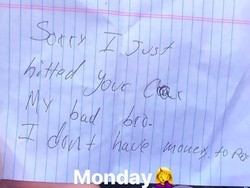 Sorry I just
hitted your Car
My bad bro.
I dont have money to
Monday 🤦